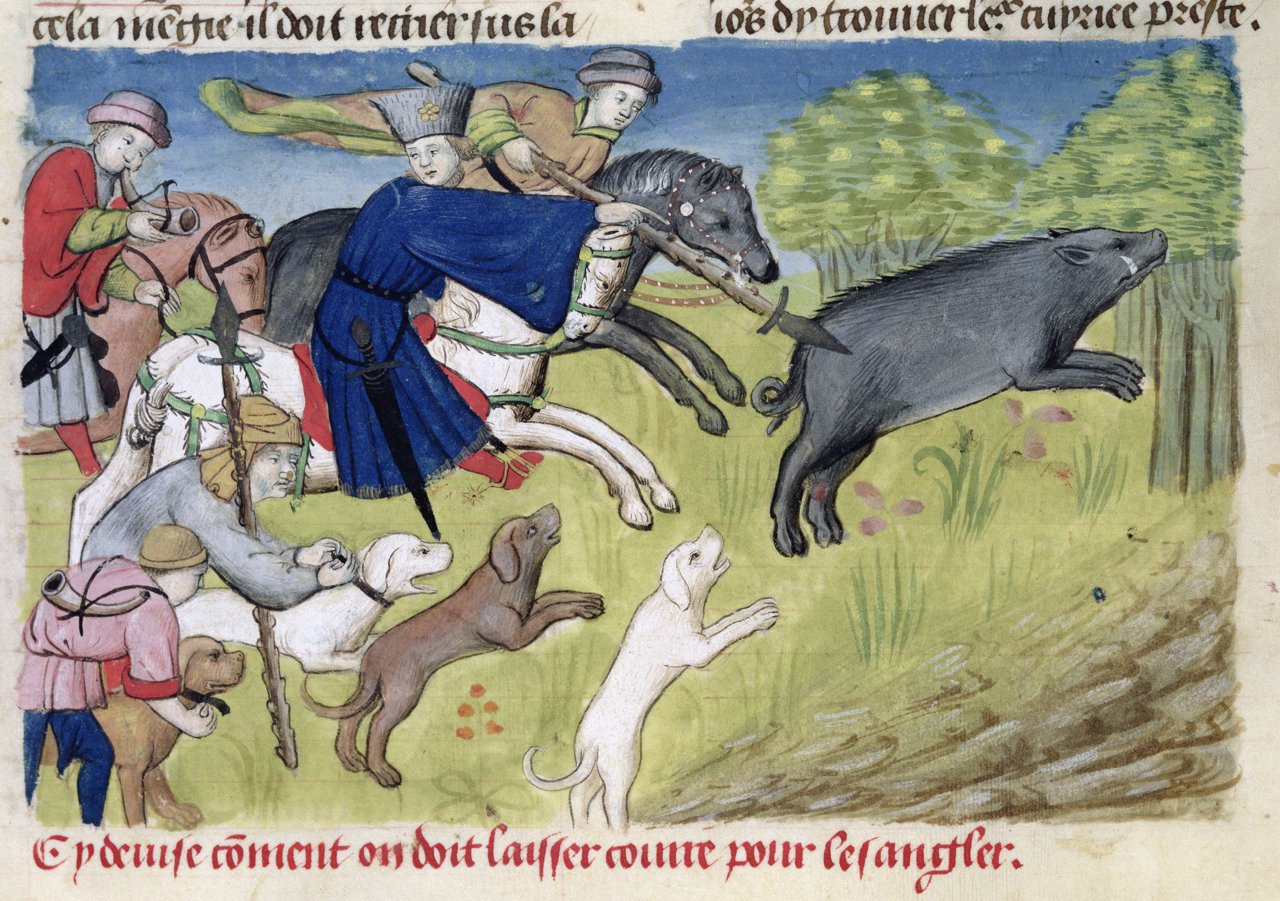 cela mēgie il doit retirer sus la
iors dy trouuer les cuyriee preste.
Cy deuise cōment on doit laisser courre pour le sangler.